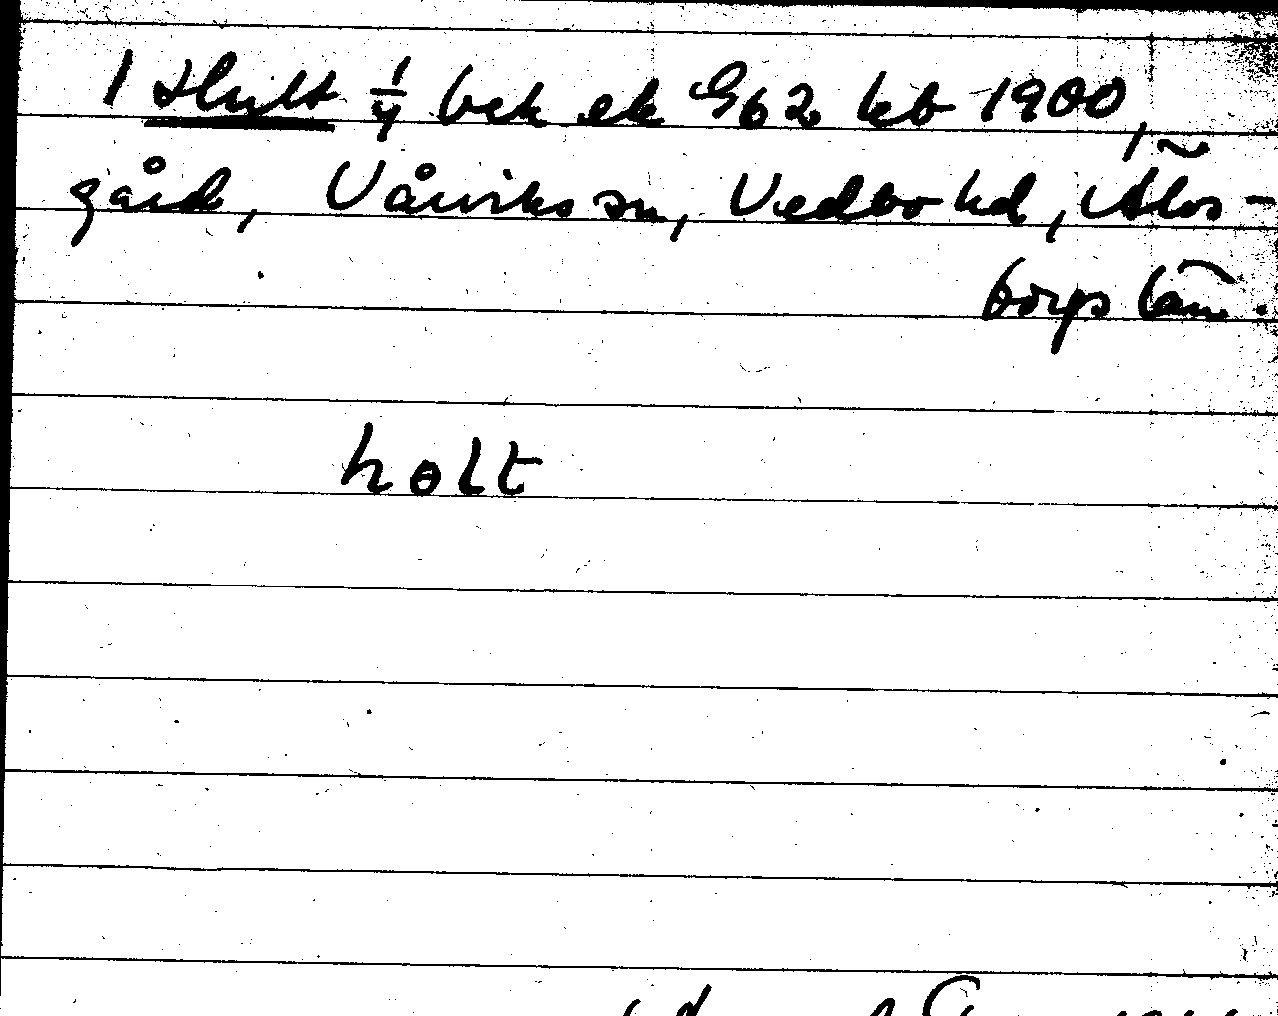 1 Hult 1/4 bek ek G62 kb 1900,
gård, Vårviks sn, Vedbo hd, Älvs-
borgs län.
holt